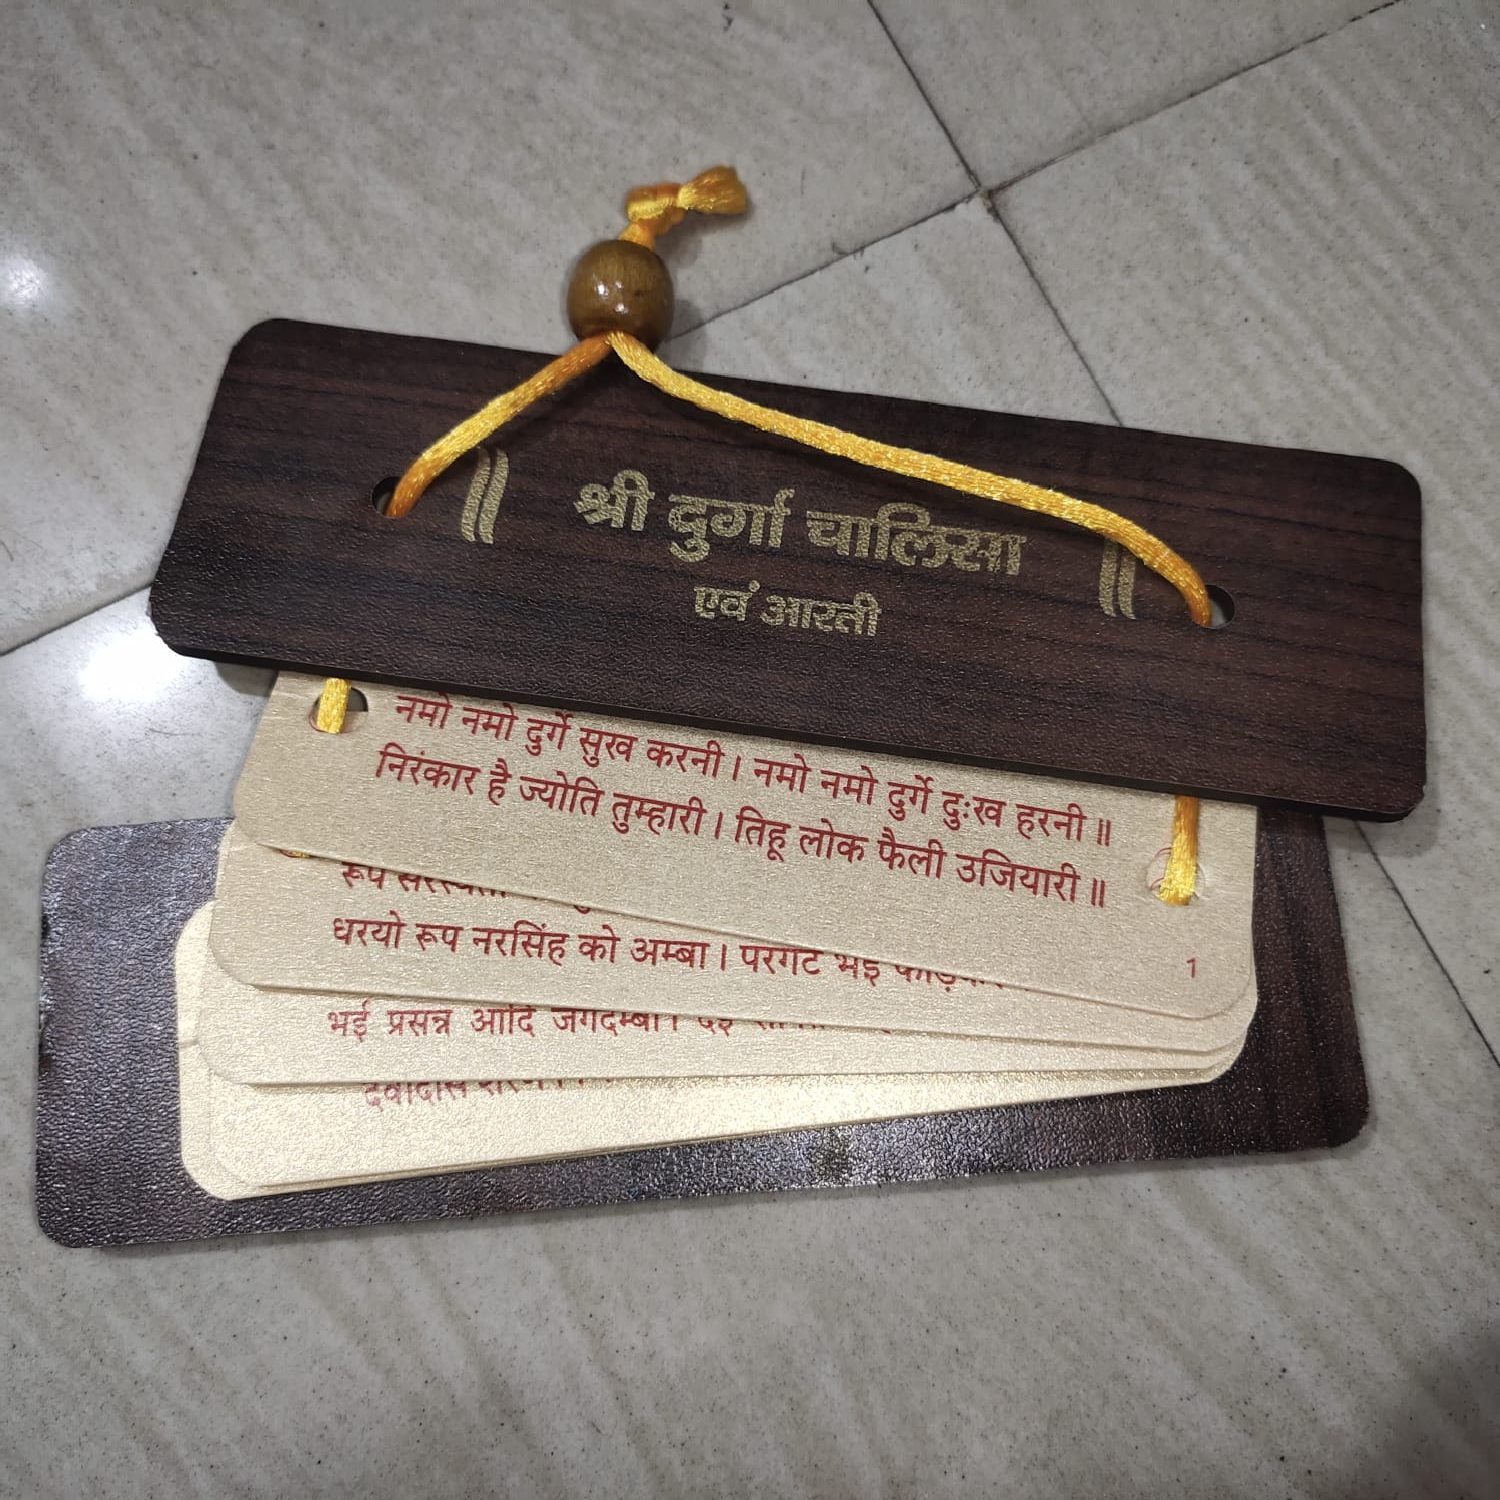 ॥ श्री दुर्गा चालिसा ॥
एवं आरती
नमो नमो दुर्गे सुख करनी। नमो नमो दुर्गे दुःख हरनी॥
निरंकार है ज्योति तुम्हारी। तिहू लोक फैली उजियारी॥
1
रूप सरस्वती
धरयो रूप नरसिंह को अम्बा। परगट भइ फाड़कर
भई प्रसन्न आदि जगदम्बा। दइ
देवीदास शरण